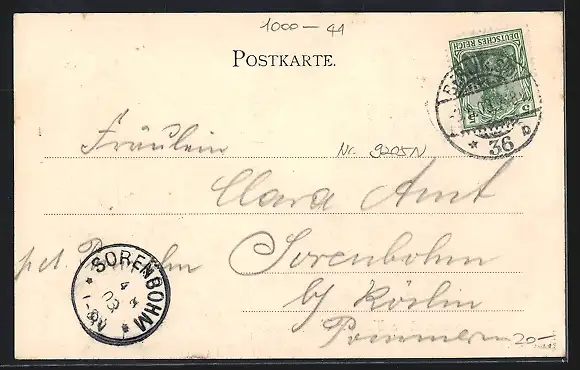 1000 — 41
POSTKARTE.
DEUTSCHES REICH
5 5
* 36 b
Fräulein
Nr. 9205N
Clara Amt
Sorenbohm
SORENBOHM
4 03
by Köslin
Pommern
20—